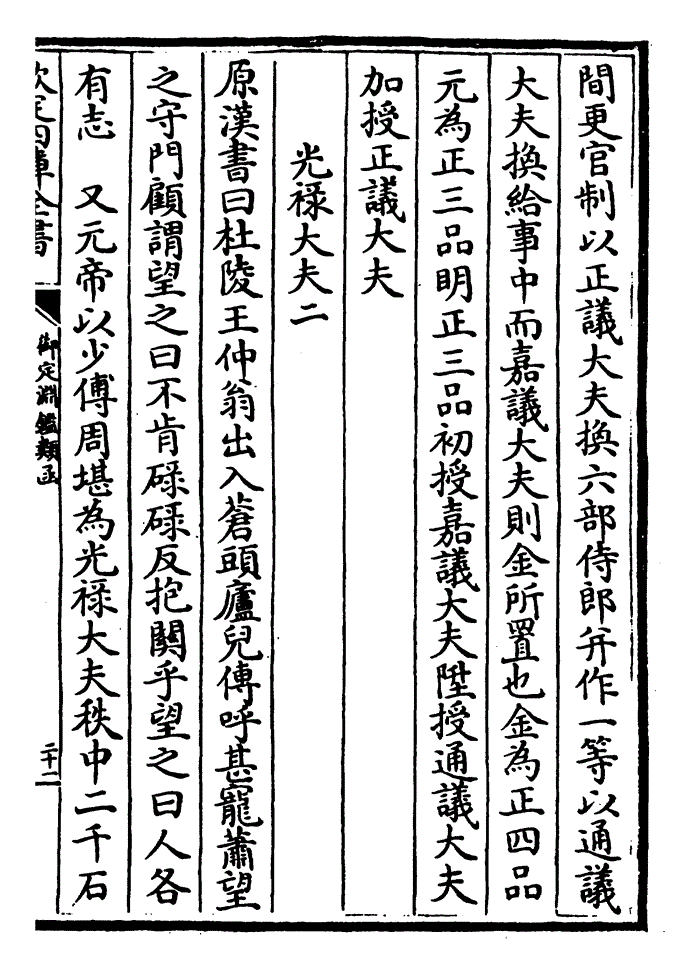 間更官制以正議大夫換六部侍郎弁作一等以通議
大夫換給事中而嘉議大夫則金所置也金為正四品
元為正三品明正三品初授嘉議大夫陞授通議大夫
加授正議大夫
光禄大夫二
原漢書曰杜陵王仲翁出入蒼頭廬兒傳呼甚寵蕭望
之守門顧謂望之曰不肯碌碌反抱關乎望之曰人各
有志　又元帝以少傅周堪為光禄大夫秩中二千石
欽定四庫全書
御定淵鑑類函
二十二